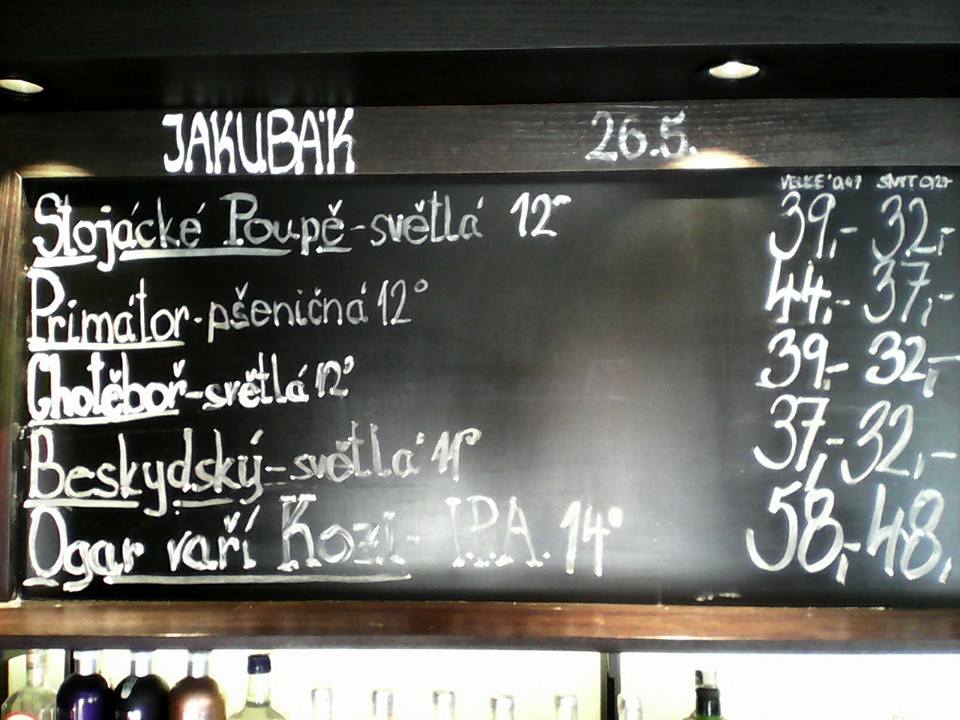 JAKUBÁK 26.5.
VELKÉ 0,47
Stojácké Poupě - světlá 12° 39,- 32,-
Primátor - pšeničná 12° 44,- 37,-
Chotěboř - světlá 12° 39,- 32,-
Beskydský - světlá 11° 37,- 32,-
Ogar vaří Kozi - I.P.A. 14° 58,- 48,